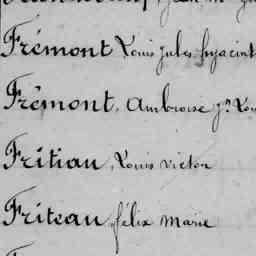 Frémont Louis Jules hyacint
Frémont, Ambroise Jn Lou
Fritiau, Louis victor
Friteau, félix marie